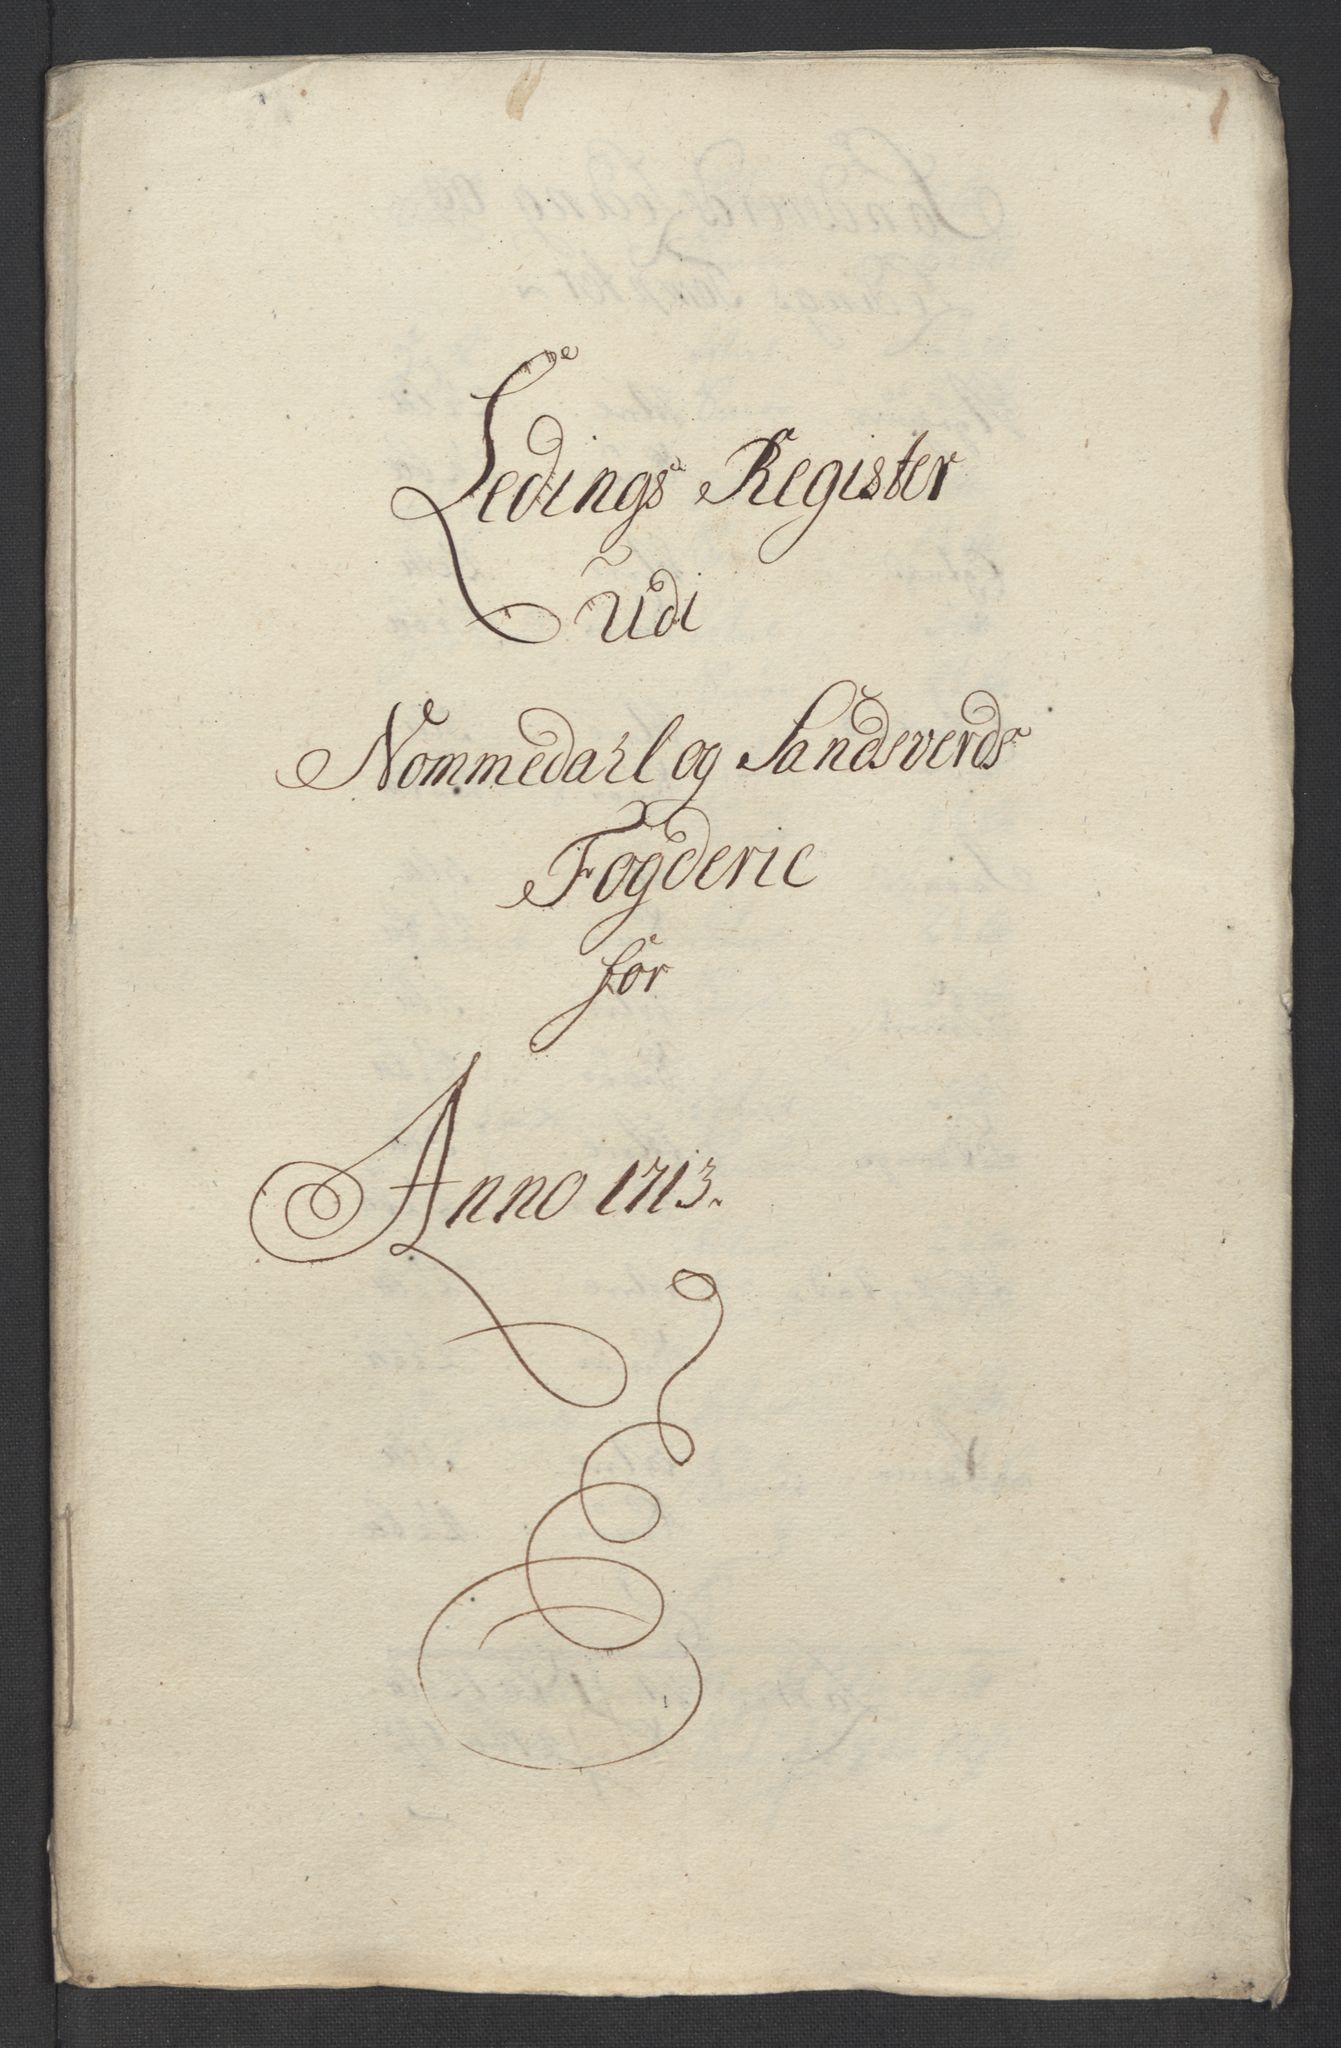 Ledings Register
Udi
Nommedahl og Sandsverds
Fogderie
for
Anno 1713.